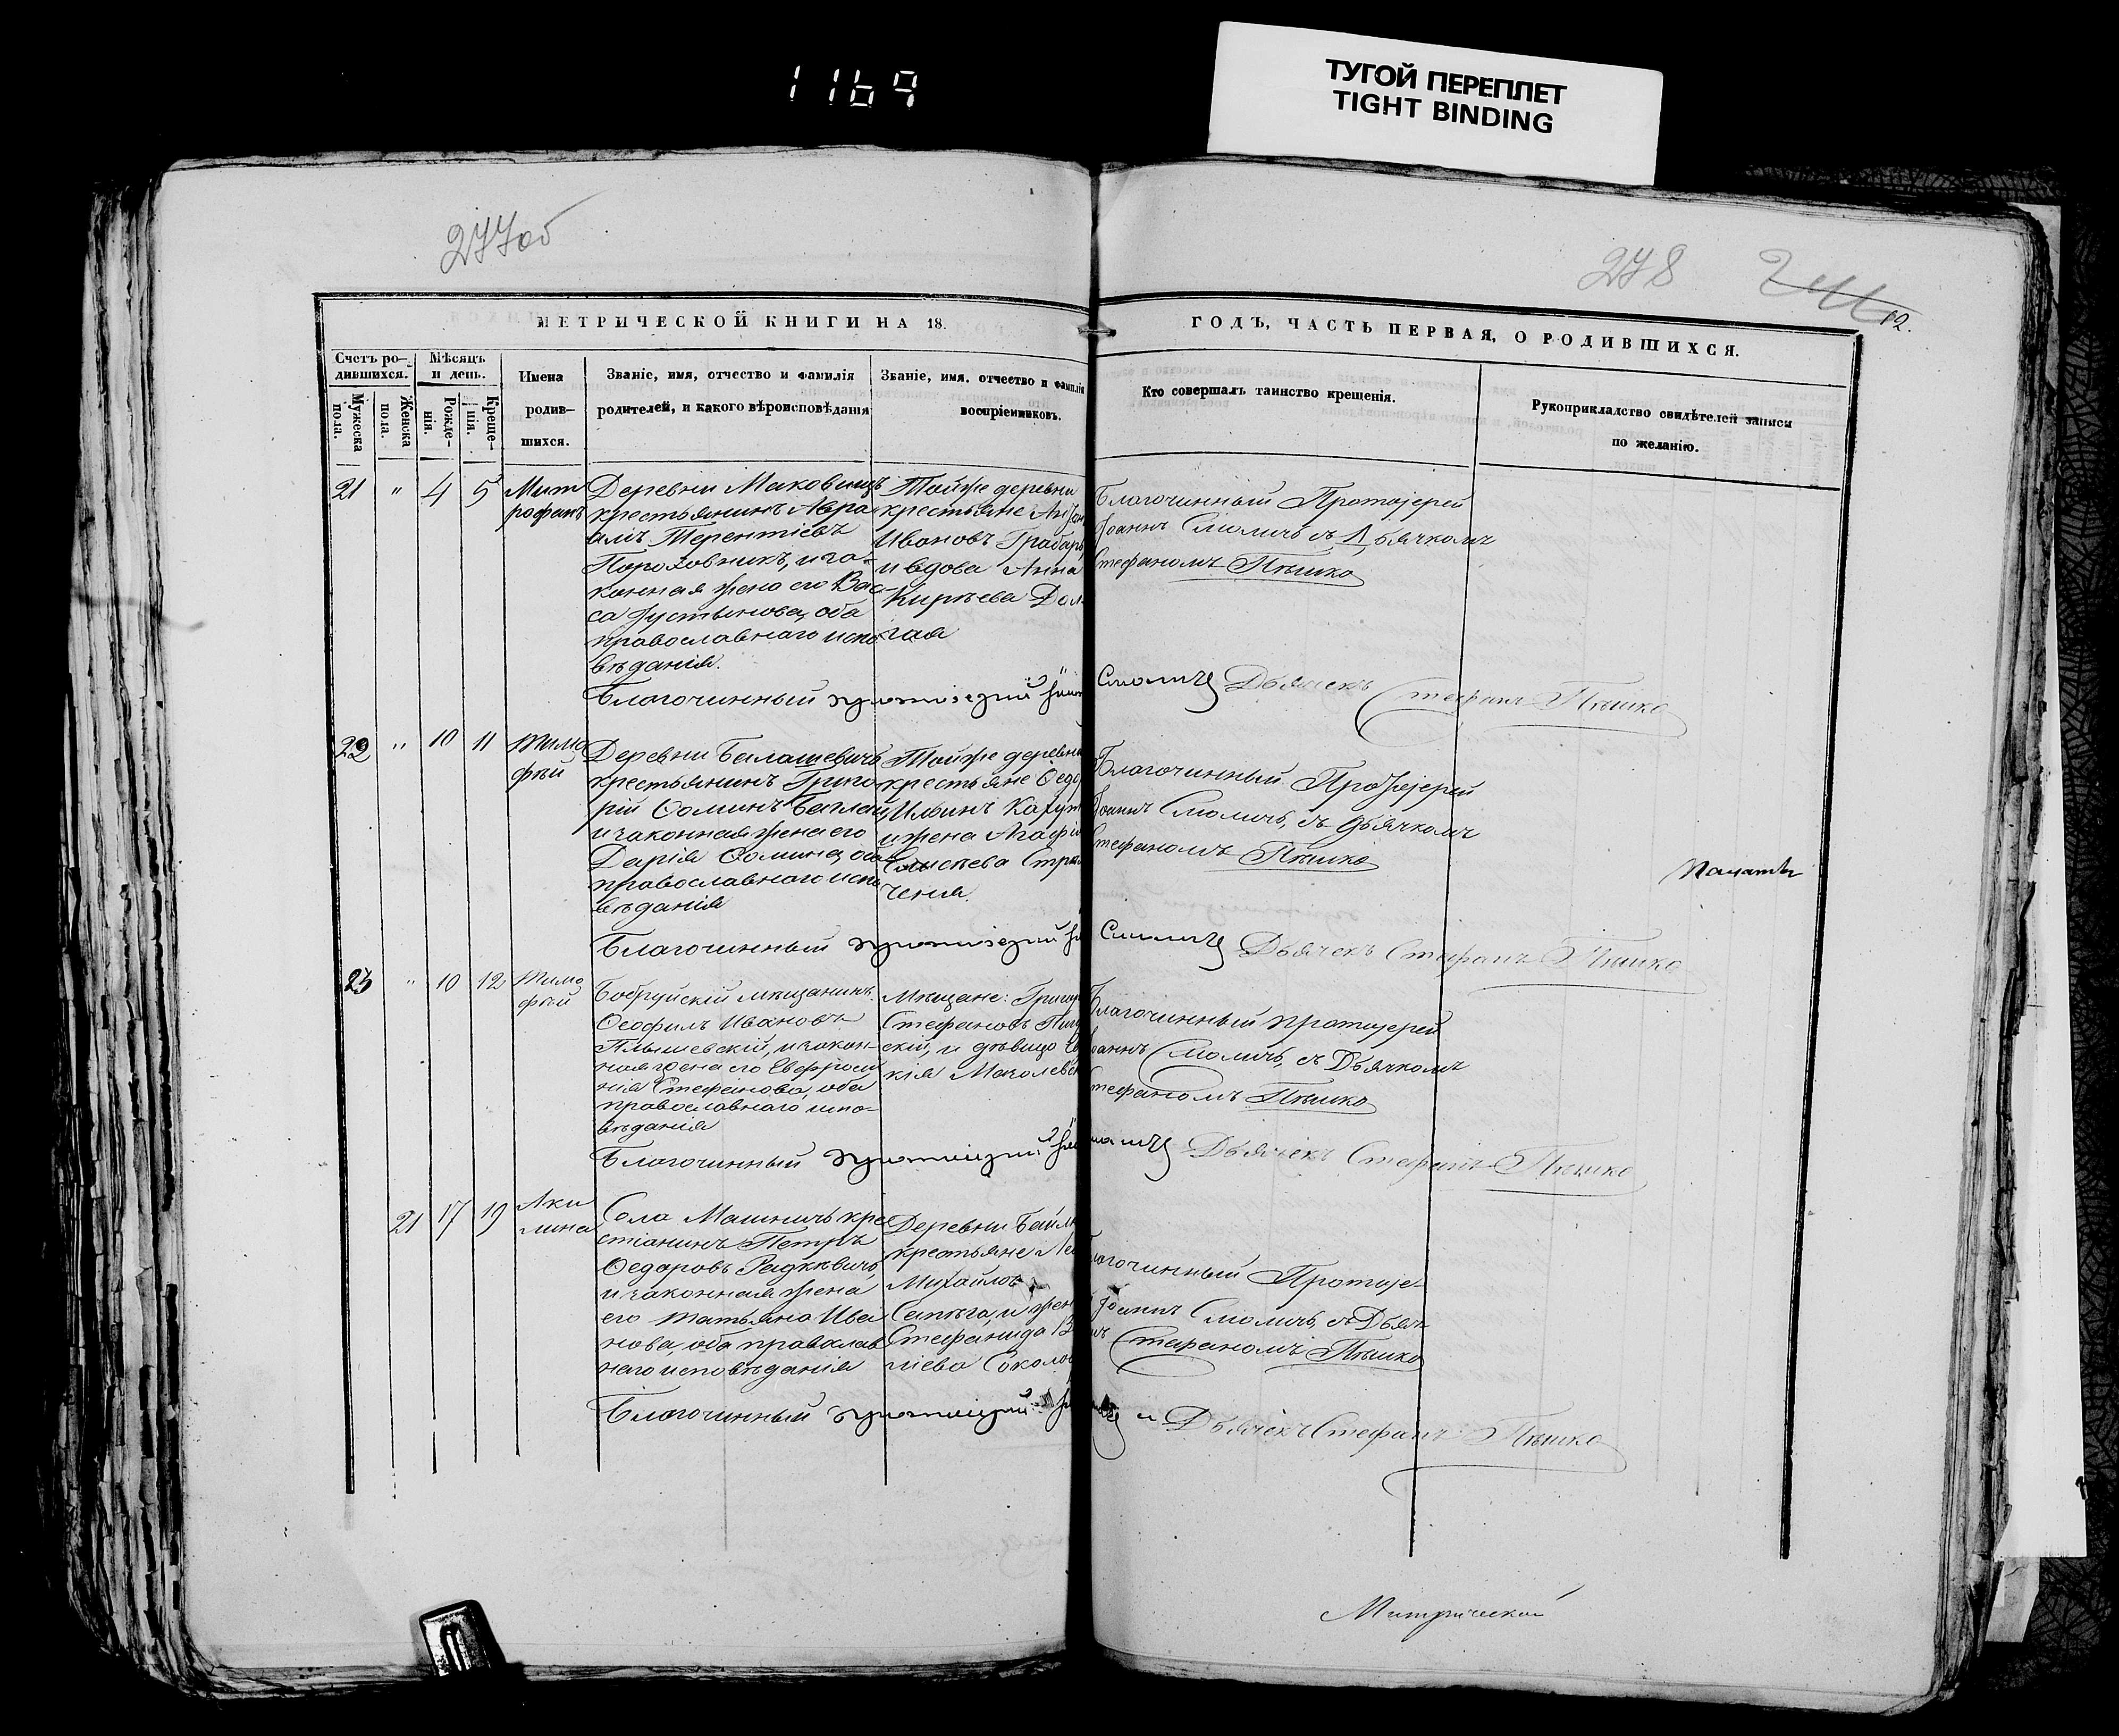 1169
ТУГОЙ ПЕРЕПЛЕТ
TIGHT BINDING
277об
278
МЕТРИЧЕСКОЙ КНИГИ НА 18.
ГОДЪ, ЧАСТЬ ПЕРВАЯ, О РОДИВШИХСЯ.
Счетъ ро-
дившихся.
Мужеска
пола.
Женска
пола.
Мѣсяцъ
и день.
Рожде-
нія.
Креще-
нія.
Имена
родив-
шихся.
Званіе, имя, отчество и фамилія
родителей, и какого вѣроисповѣданія
Званіе, имя, отчество и фамилія
воспріемниковъ.
Кто совершалъ таинство крещенія.
Рукоприкладство свидѣтелей записи
по желанію.
21 " 4 5
Мит
рофанъ
Деревни Маковищъ
крестьянинъ Авра
амъ Терентіевъ
Пороховникъ, и за-
конная жена его Вас-
са Іустинова, оба
православнаго испо
вѣданія.
Тойже деревни
крестьяне Антон
Ивановъ Грабарь
и вдова Анна
Кирѣева Дол
гая
Благочинный Протоіерей
Іоаннъ Смоличъ съ Дьячкомъ
Стефаномъ Пѣшко
Благочинный протоіерей
Смоличъ Дьячекъ Стефанъ Пѣшко
22 " 10 11
Тимо
фей
Деревни Балашевичъ
крестьянинъ Григо
рій Ѳоминъ Баглай
и законная жена его
Дарія Ѳомина, оба
православнаго испо
вѣданія
Тойже деревни
крестьяне Ѳедо
Ильинъ
и жена Агафія
Елисѣева
Благочинный Протоіерей
Іоаннъ Смоличъ, съ Дьячкомъ
Стефаномъ Пѣшко
Благочинный протоіерей
Смоличъ Дьячекъ Стефанъ Пѣшко
23 " 10 12
Тимо
фей
Бобруйскій мѣщанинъ
Ѳеофилъ Ивановъ
Плышевскій, и закон-
ная жена его Евфроси
нія Стефанова, оба
православнаго испо-
вѣданія
Мѣщане: Григор
Стефановъ
скій, и дѣвица
кія
Благочинный протоіерей
Іоаннъ Смоличъ, съ Дьячкомъ
Стефаномъ Пѣшко
Благочинный протоіерей
Смоличъ Дьячекъ Стефанъ Пѣшко
21 17 19
Аки
лина
Села Машничь кре
стіанинъ Петръ
Ѳедоровъ Радкевичъ,
и законная жена
его Татьяна Ива
нова, оба православ
наго исповѣданія
Деревни
крестьяне
Михайловъ
Сапѣга, и жен
Стефанида
ліева
Благочинный Протоіе-
Іоаннъ Смоличъ, съ Дьяч
Стефаномъ Пѣшко
Благочинный протоіерей
и Дьячекъ Стефанъ Пѣшко
Митрической